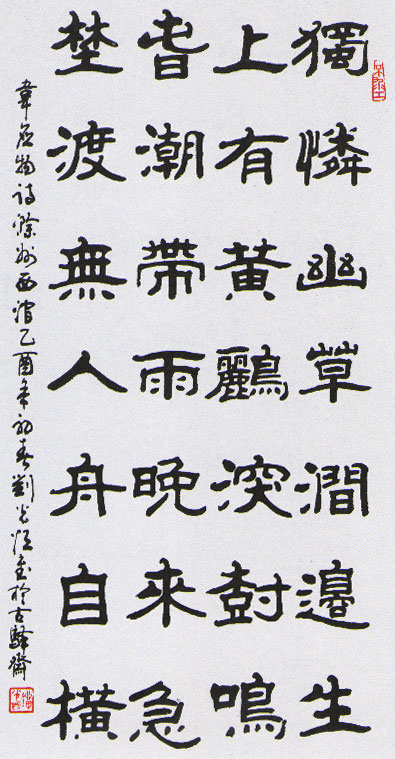 獨憐幽草澗邊生
上有黃鸝深尌鳴
旾潮帶雨晚來急
埜渡無人舟自橫
韋應物詩滁州西澗乙酉年初春劉光書於古驛齋